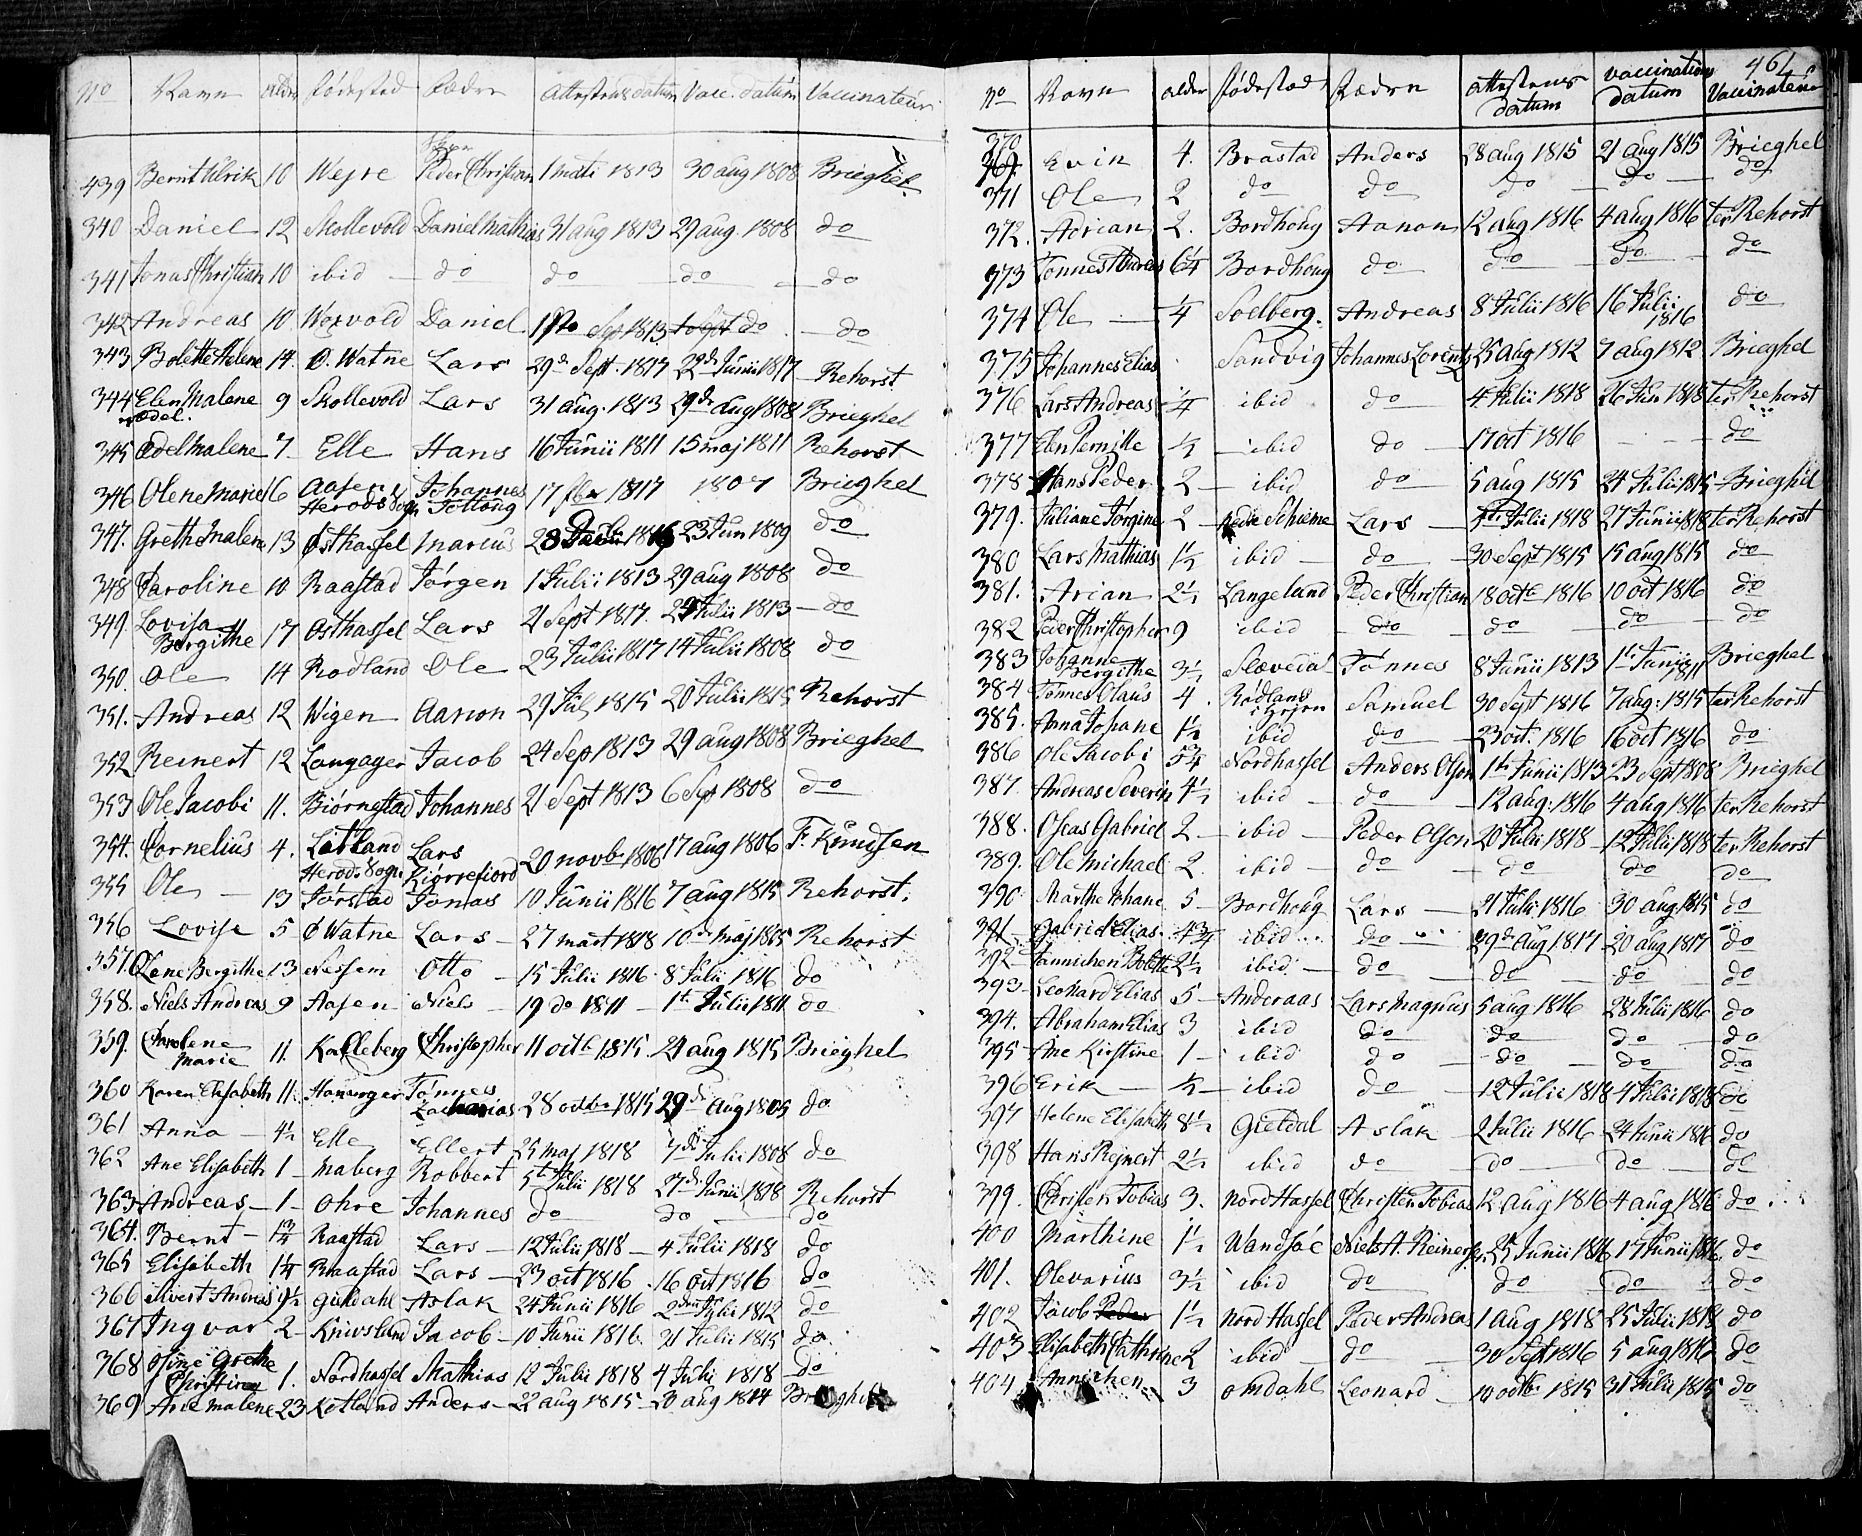 No Navn alder fødested Fædre Attestens datum Vacc. datum Vaccinateur
439 Bernt Ulrik 10 Vejre Peder Christian 1 mati 1813 30 aug 1808 Brieghel
340 Daniel 12 Skollevold Daniel Mathias 31 aug 1813 29 aug. 1808 do
341 Jonas Christian 10 ibid do do do do
342 Andreas 10 Woxvold Daniel Sep 1813 do do
343 Bolette Helene 14. Ø. Watne Lars 29de Sept. 1817 22de Junii 1817 Rehorst
344 Elen Malene 9 Skollevold Lars 31 aug. 1813 29de aug 1808 Brieghel
ædel.
345 Ædel Malene 7 Elle Hans 16 Junii 1811 15 maj 1811 Rehorst
346 Olene Marie 16 Aasen Johannes 17 fbr 1817 1807 Brieghel
Herods Sogn Tottong
347. Grethe Malene 13 Østhassel Marcus 28 1816 23 Jun 1809 do
348 Caroline 10 Raastad Jørgen 1 Julii 1813 29 aug 1808 do
349. Lovisa
Bergithe 17 Østhassel Lars 21 Sept 1817. 29 Julii 1813 do
350. Ole 14 Rodland Ole 23 Julii 1817 14 Julii 1808 do
351. Andreas 12 Wigen Aanon 29 Jul 1815 20 Julii 1815 Rehorst
352 Reinert 12 Langager Jacob 24 Sep 1813 29 aug 1808 Brieghel
353 Ole Jacobi 11. Biørnestad Johannes 21 Sept 1813 6 Sep 1808 do
354. Cornelius 4. Lætland Lars 20 novb 1806 17 aug 1806 F. Knudsen
Herods Sogn Kiørrefiord
355 Ole 13 Jørstad Jonas 10 Junii 1816 7 aug 1815 Rehorst.
356 Lovise 5 Ø Watne Lars 27 mart 1818 10de maj 1815 Rehorst
357. Lene Bergithe 13 Nessem Otto 15 Julii 1816 8 Julii 1816 do
358. Niels Andreas 9 Aasen Niels 19 do 1811 1te Julii 1811 do
359. Carolene
Marie 11. Kalleberg Christopher 11 octb 1815 21 aug 1815 Brieghel
360 Karen Elisabeth 11. Hananger Tønnes
Zacharias 28 octbr 1815 29de aug 1805 do
361 Anna 4½ Elle Ellert 25 maj 1818 7de Julii 1808 do
362 Ane Elisabeth 1 Maberg Robbert 5te Julii 1818 27de Junii 1818 Rehorst
363 Andreas 1 Ohre Johannes do do do
364. Bernt 1¾ Raastad Lars 12 Julii 1818 4 Julii 1818 do
365 Elisabeth 1¼ Raastad Lars 23 oct 1816 16 oct 1816 do
366 Sivert Andreas 9½ Gieldahl Aslak 24 Junii 1816 2den Julii 1812 do
367 Ingvar 2 Knivsland Jacob 10 Junii 1816 21 Julii 1815 do
368 Osine Grethe
Christine 1. Nordhassel Mathias 12 Julii 1818 4 Julii 1818 do
369 Ane Malene 23 Kotland Anders 22 aug 1815 20 aug 1814 Brieghel
461
No Navn alder fødested Fædre attestens datum vaccinations datum Vaccinateur
370 Evin 4. Brastad Anders 28 aug 1815 21 aug 1815 Brieghel
371 Ole 2 do do do do do
372. Adrian 2. Bordhoug Aanon 12 aug 1816 4 aug 1816 ter Rehorst
373 Tonnes Andreas 6¼ Bordhoug do do do do
374 Ole ¼ Soelberg Andreas 8 Julii 1816 16 Julii 1816 do
375 Johannes Elias Sandvig Johannes Lorents 25 aug 1812 7 aug 1812 Brieghel
376 Lars Andreas ¼ ibid do 4 Julii 1818 26 Jun 1818 ter Rehorst
377 Elen Pernille ½ ibid do 17 oct 1816 do
378 Hans Peder 2 ibid do 5 aug 1815 24 Julii 1815 Brieghel
379. Juliane Jørgine 2 Lars Julii 1818 27 Junii 1818 ter Rehorst
380 Lars Mathias 1½ ibid do 30 Sept 1815 15 aug 1815 do
381. Arian 2½ Langeland Peder Christian 18 octb 1816 10 oct 1816 do
382 Peder Christopher 9 ibid do do do do
383 Johanne
Bergithe 3½ Tønnes 8 Junii 1813 1te Junii 1811 Brieghel
384 Tønnes Olaus 4. Rødland Samuel 30 Sept 1816 7 aug: 1815 ter Rehorst
385. Anna Johane 1½ ibid do 23 oct. 1816 16 oct 1816 do
386 Ole Jacobi 5¾ Nordhassel Anders Olsen 1te Junii 1813 23 Sept 1808 Brieghel
387. Andreas Severin 4½ ibid do 12 aug. 1816 4 aug 1816 ter Rehorst
388. Oseas Gabriel 2 ibid Peder Olsen 20 Julii 1818 12 Julii 1818 ter Rehorst
389. Ole Michael 2. ibid do do do do
390 Marthe Johane 5 Bordhoug Lars 21 Julii 1816 30 aug. 1815 do
391 Gabriel Elias 4¾ ibid do 29de Aug 1817 20 aug 1817 do
392 Jannichen Bolette 2½ ibid do do do do
393 Leonard Elias 5 Anderaas Lars Magnus 5 aug 1816 28 Julii 1816 do
394. Abraham Elias 3 ibid do do do do
395 Ane Kirstine 1 ibid do do do do
396 Erik ½ ibid do 12 Julii 1818 4 Julii 1818 do
397 Helene Elisabeth 8½ Gieldal Aslak 2 Julii 1816 24 Junii 1816 do
398 Hans Reinert 2½ ibid do do do do
399. Christen Tobias 3. Nord Hassel Christen Tobias 12 aug 1816 4 aug 1816 do
400 Marthine 1½ Wandsøe Niels A. Reinersen 25 Junii 1816 17 Junii 1816 do
401. Olevarius 3½ ibid do do do do
402 Jacob Peder 1½ Nord Hassel Peder Andreas 1 aug 1818 25 Julii 1818 do
403 Elisabeth Cathrine 2 ibid do 30 Sept 1816 5 aug 1816 do
404 Annichen 3 Omdahl Leonard 10 octb. 1815 31 Julii 1815 do